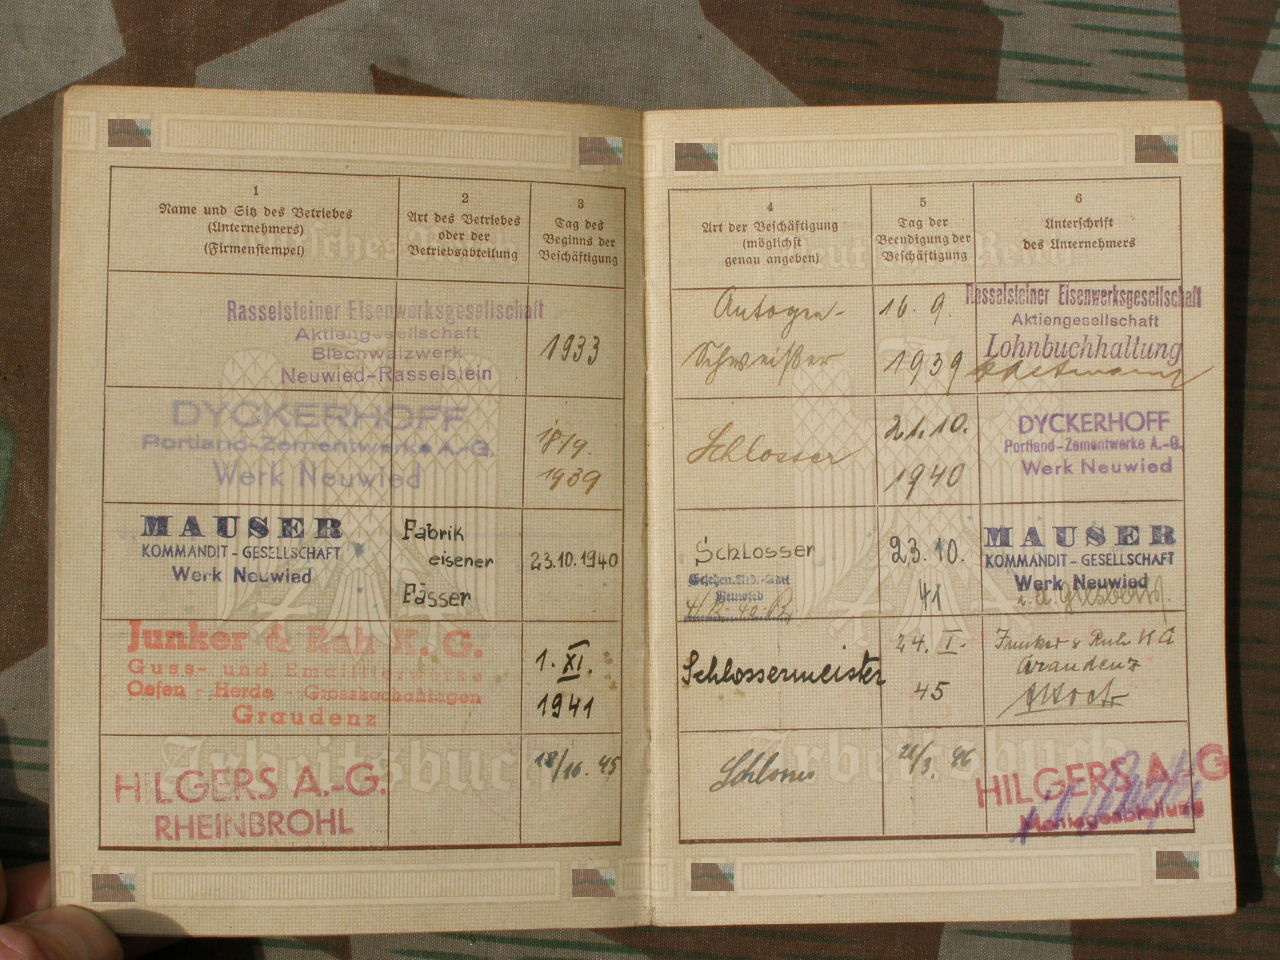 1
Name und Sitz des Betriebes
(Unternehmers)
(Firmenstempel)
2
Art des Betriebes
oder der
Betriebsabteilung
3
Tag des
Beginns der
Beschäftigung
Rasselsteiner Eisenwerksgesellschaft
Aktiengesellschaft
Blechwalzwerk
Neuwied-Rasselstein
1933
DYCKERHOFF
Portland-Zementwerke A.-G.
Werk Neuwied
18/9.
1939
MAUSER
KOMMANDIT-GESELLSCHAFT
Werk Neuwied
Fabrik
eisener
Fässer
23.10.1940
Junker & Ruh K. G.
Guss- und Emaillierwerke
Oefen - Herde - Grosskochanlagen
Graudenz
1. XI.
1941
HILGERS A.-G.
RHEINBROHL
18/10. 45
Arbeitsbuch
4
Art der Beschäftigung
(möglichst
genau angeben)
5
Tag der
Beendigung der
Beschäftigung
6
Unterschrift
des Unternehmers
Autogen-
Schweißer
16. 9.
1939
Rasselsteiner Eisenwerksgesellschaft
Aktiengesellschaft
Lohnbuchhaltung
Schlosser
21.10.
1940
DYCKERHOFF
Portland-Zementwerke A.-G.
Werk Neuwied
Schlosser
Neuwied
23.10.
41
MAUSER
KOMMANDIT-GESELLSCHAFT
Werk Neuwied
Schlossermeister
24. I.
45
Junker & Ruh K G
Graudenz
Schlosser
HILGERS A.-G
Montageabteilung
Arbeitsbuch